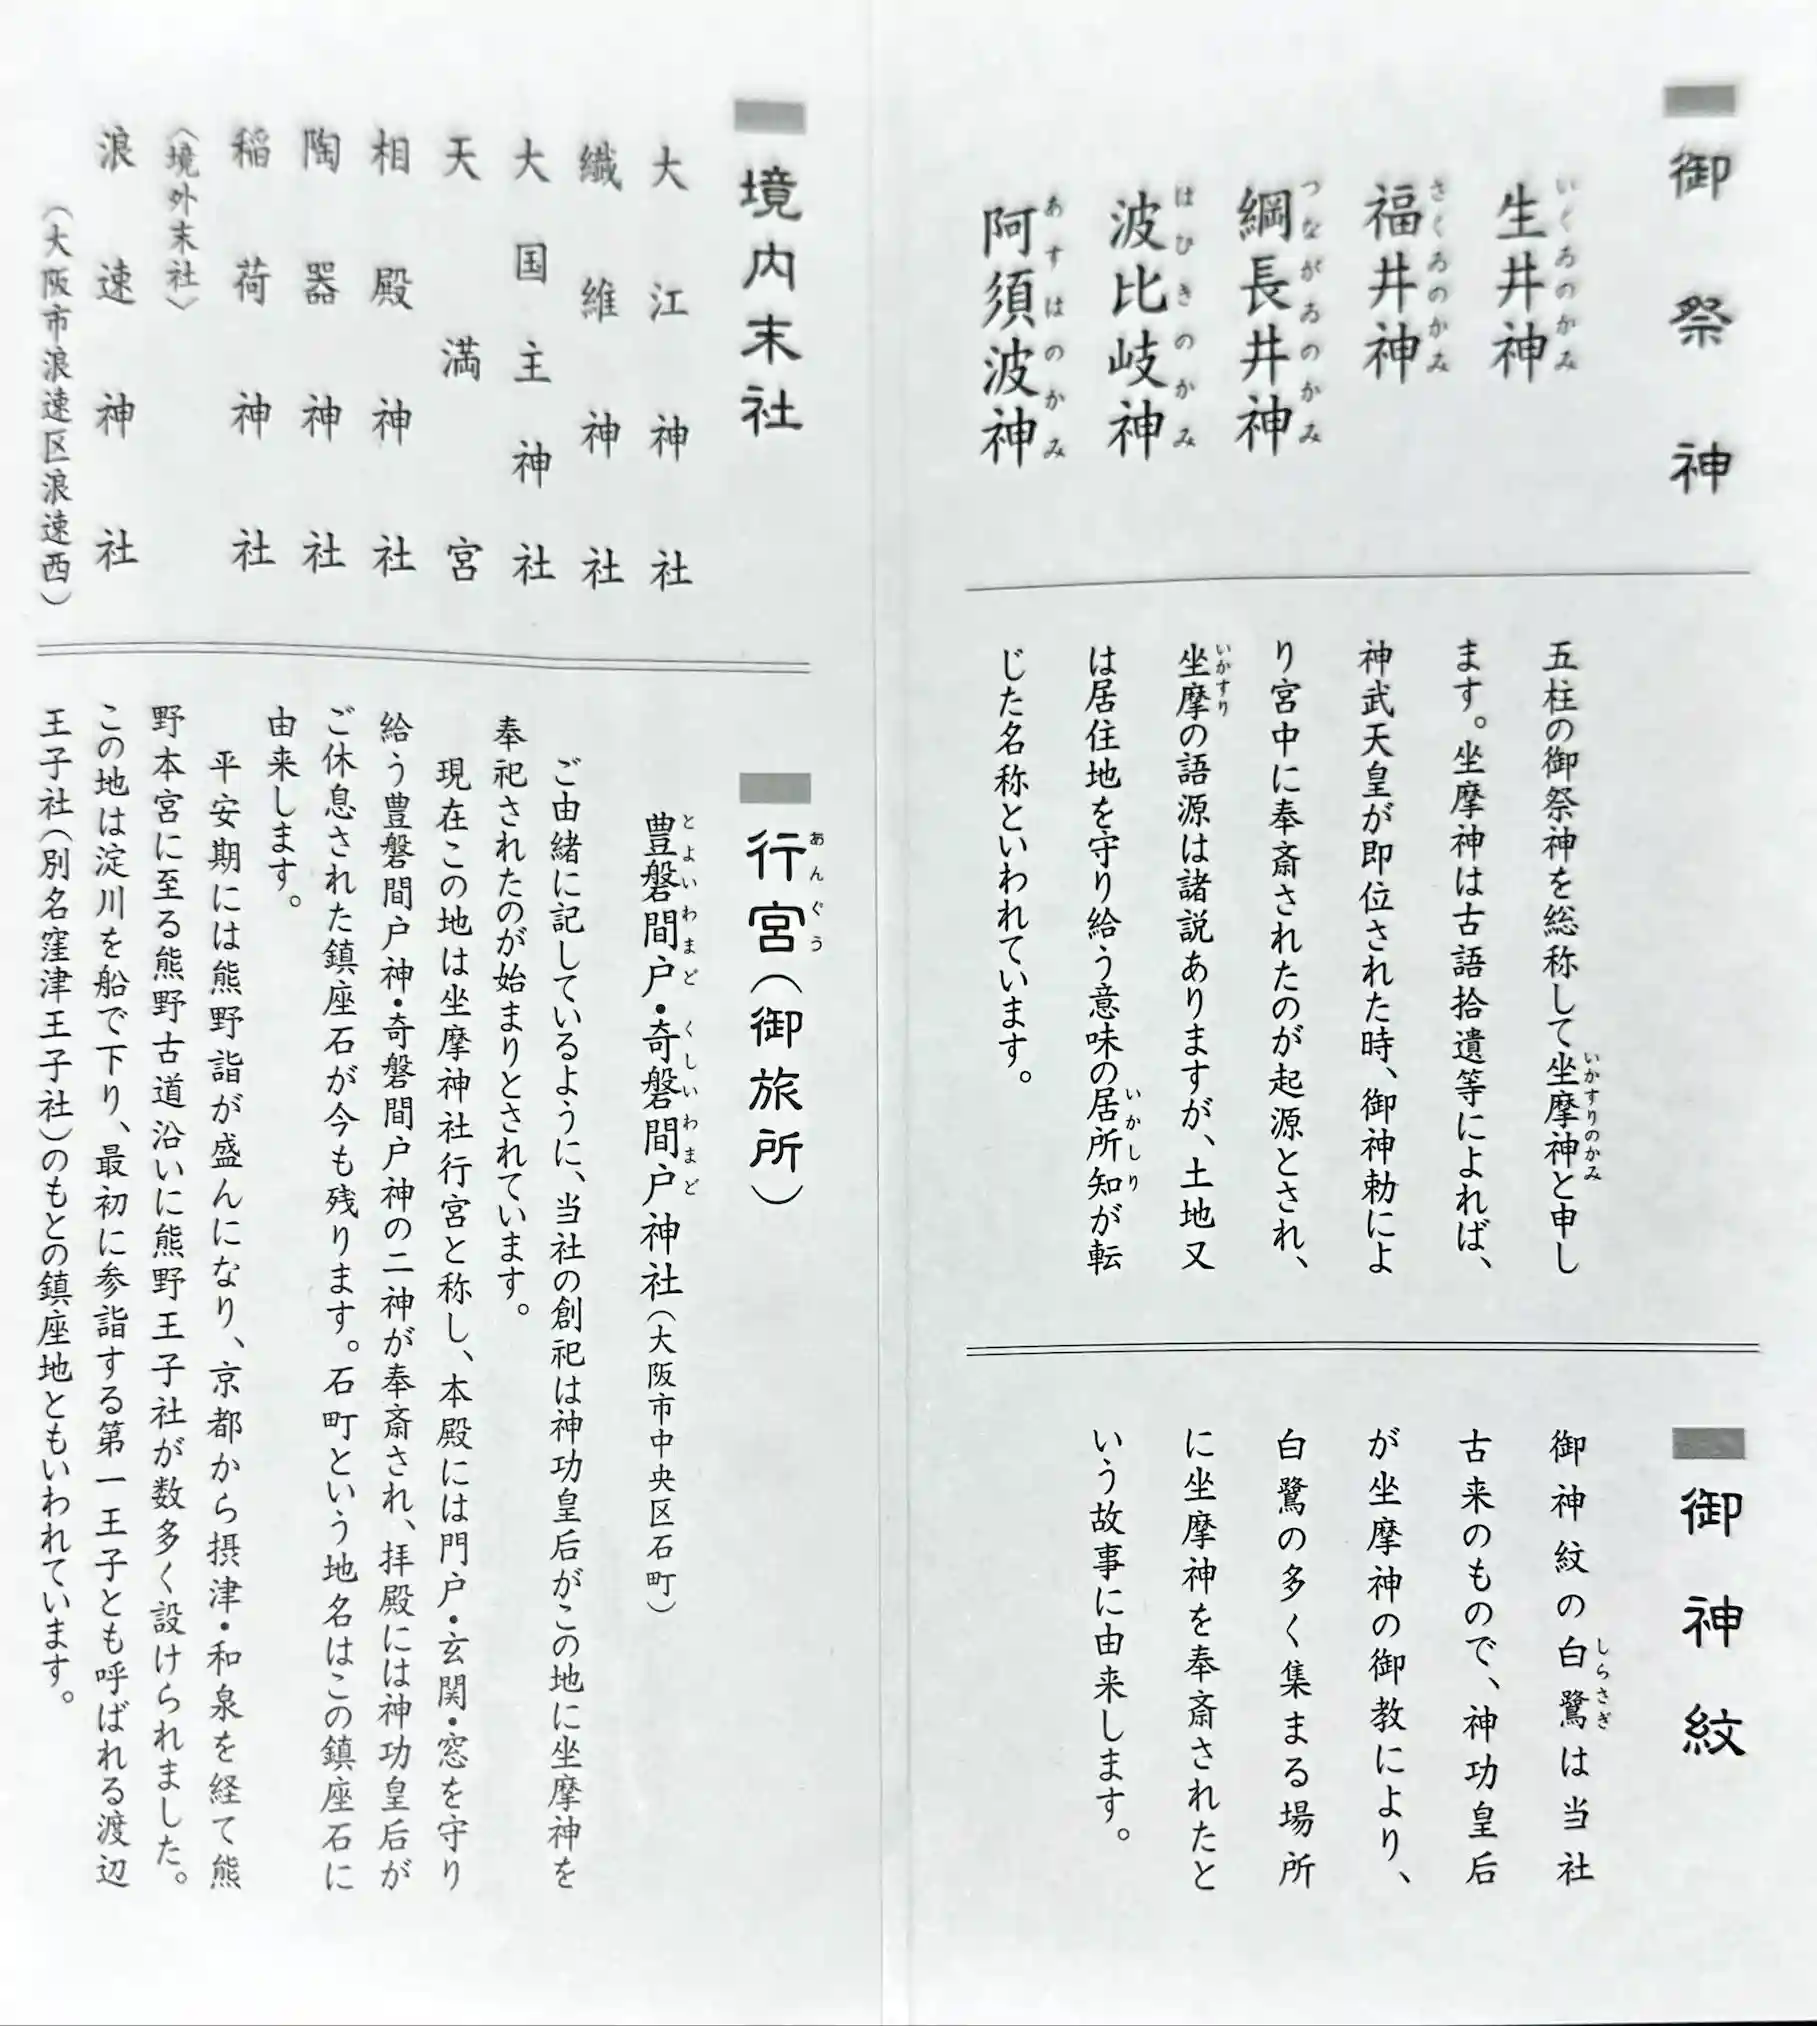 御祭神
生井神
いくゐのかみ
福井神
さくゐのかみ
綱長井神
つながゐのかみ
波比岐神
はひきのかみ
阿須波神
あすはのかみ
五柱の御祭神を総称して坐摩神と申し
いかすりのかみ
ます。坐摩神は古語拾遺等によれば、
神武天皇が即位された時、御神勅によ
り宮中に奉斎されたのが起源とされ、
坐摩の語源は諸説ありますが、土地又
いかすり
は居住地を守り給う意味の居所知が転
いかしり
じた名称といわれています。
御神紋
御神紋の白鷺は当社
しらさぎ
古来のもので、神功皇后
が坐摩神の御教により、
白鷺の多く集まる場所
に坐摩神を奉斎されたと
いう故事に由来します。
境内末社
大江神社
繊維神社
大国主神社
天満宮
相殿神社
陶器神社
稲荷神社
〈境外末社〉
浪速神社
(大阪市浪速区浪速西)
行宮(御旅所)
あんぐう
豊磐間戸・奇磐間戸神社(大阪市中央区石町)
とよいわまど くしいわまど
ご由緒に記しているように、当社の創祀は神功皇后がこの地に坐摩神を
奉祀されたのが始まりとされています。
現在この地は坐摩神社行宮と称し、本殿には門戸・玄関・窓を守り
給う豊磐間戸神・奇磐間戸神の二神が奉斎され、拝殿には神功皇后が
ご休息された鎮座石が今も残ります。石町という地名はこの鎮座石に
由来します。
平安期には熊野詣が盛んになり、京都から摂津・和泉を経て熊
野本宮に至る熊野古道沿いに熊野王子社が数多く設けられました。
この地は淀川を船で下り、最初に参詣する第一王子とも呼ばれる渡辺
王子社(別名窪津王子社)のもとの鎮座地ともいわれています。